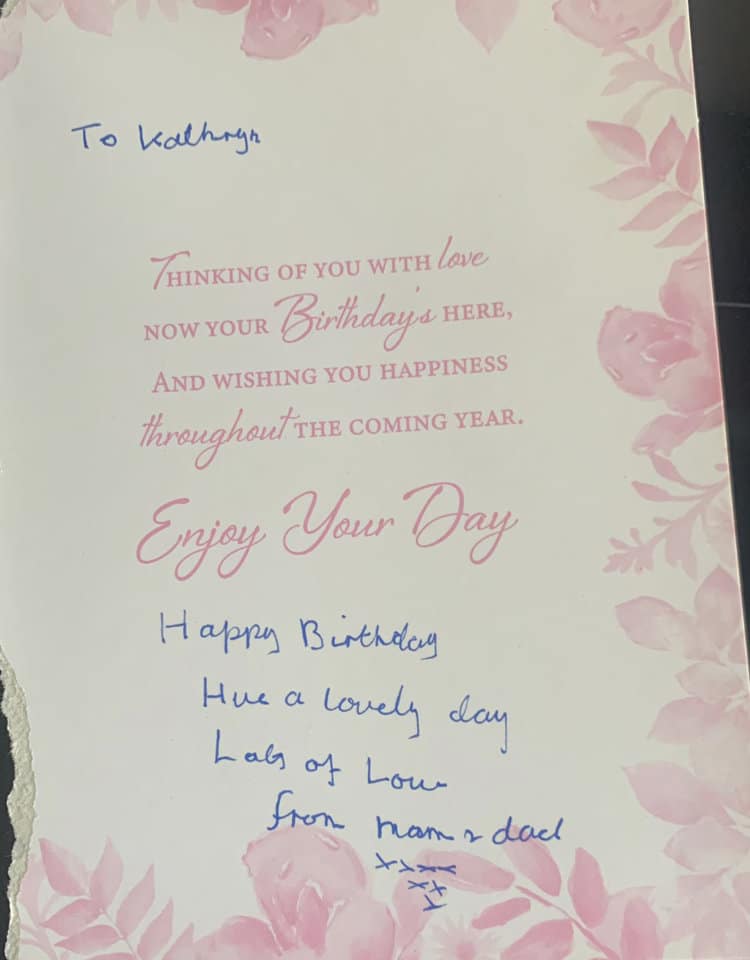 To Kathryn
THINKING OF YOU WITH love
NOW YOUR Birthday's HERE,
AND WISHING YOU HAPPINESS
throughout THE COMING YEAR.
Enjoy Your Day
Happy Birthday
Hve a lovely day
Lots of Love
from mam & dad
xxxx
xx
x